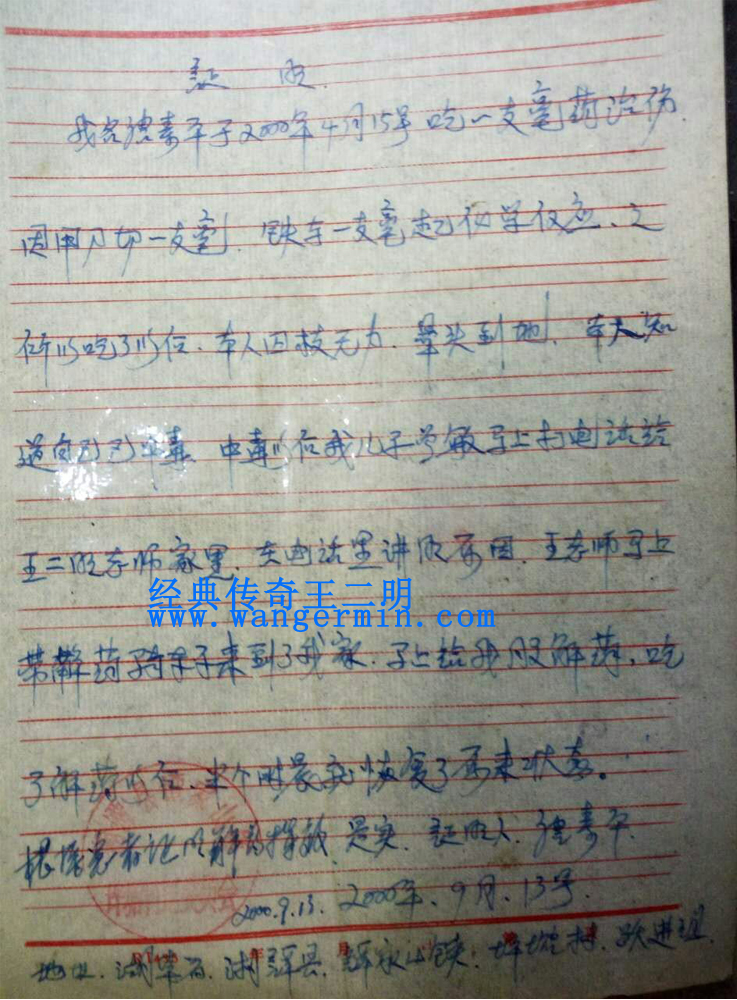 证明.
我名德秦平于2000年4月15号吃一支毫药治伤.
因用刀切一支毫.铁与一支毫起化学仅应、之
吃了以后、本人四枝无力.晕头到地、本人知
道自己已中毒 中毒以后我儿子 马上打电话给
王二明老师家里.在电话里讲明原因.王老师马上
带解药骑车子来到了我家.马上给我服解药、吃
了解药以后、半个时 恢复了原来状态。
根据患者证明解药 效 是实. 证明人. 秦平.
2000.9.13. 2000年、9月、13号.
地址.湖南省.湘 县. 永山 . 村. 跃进组.
经典传奇王二明
www.wangermin.com